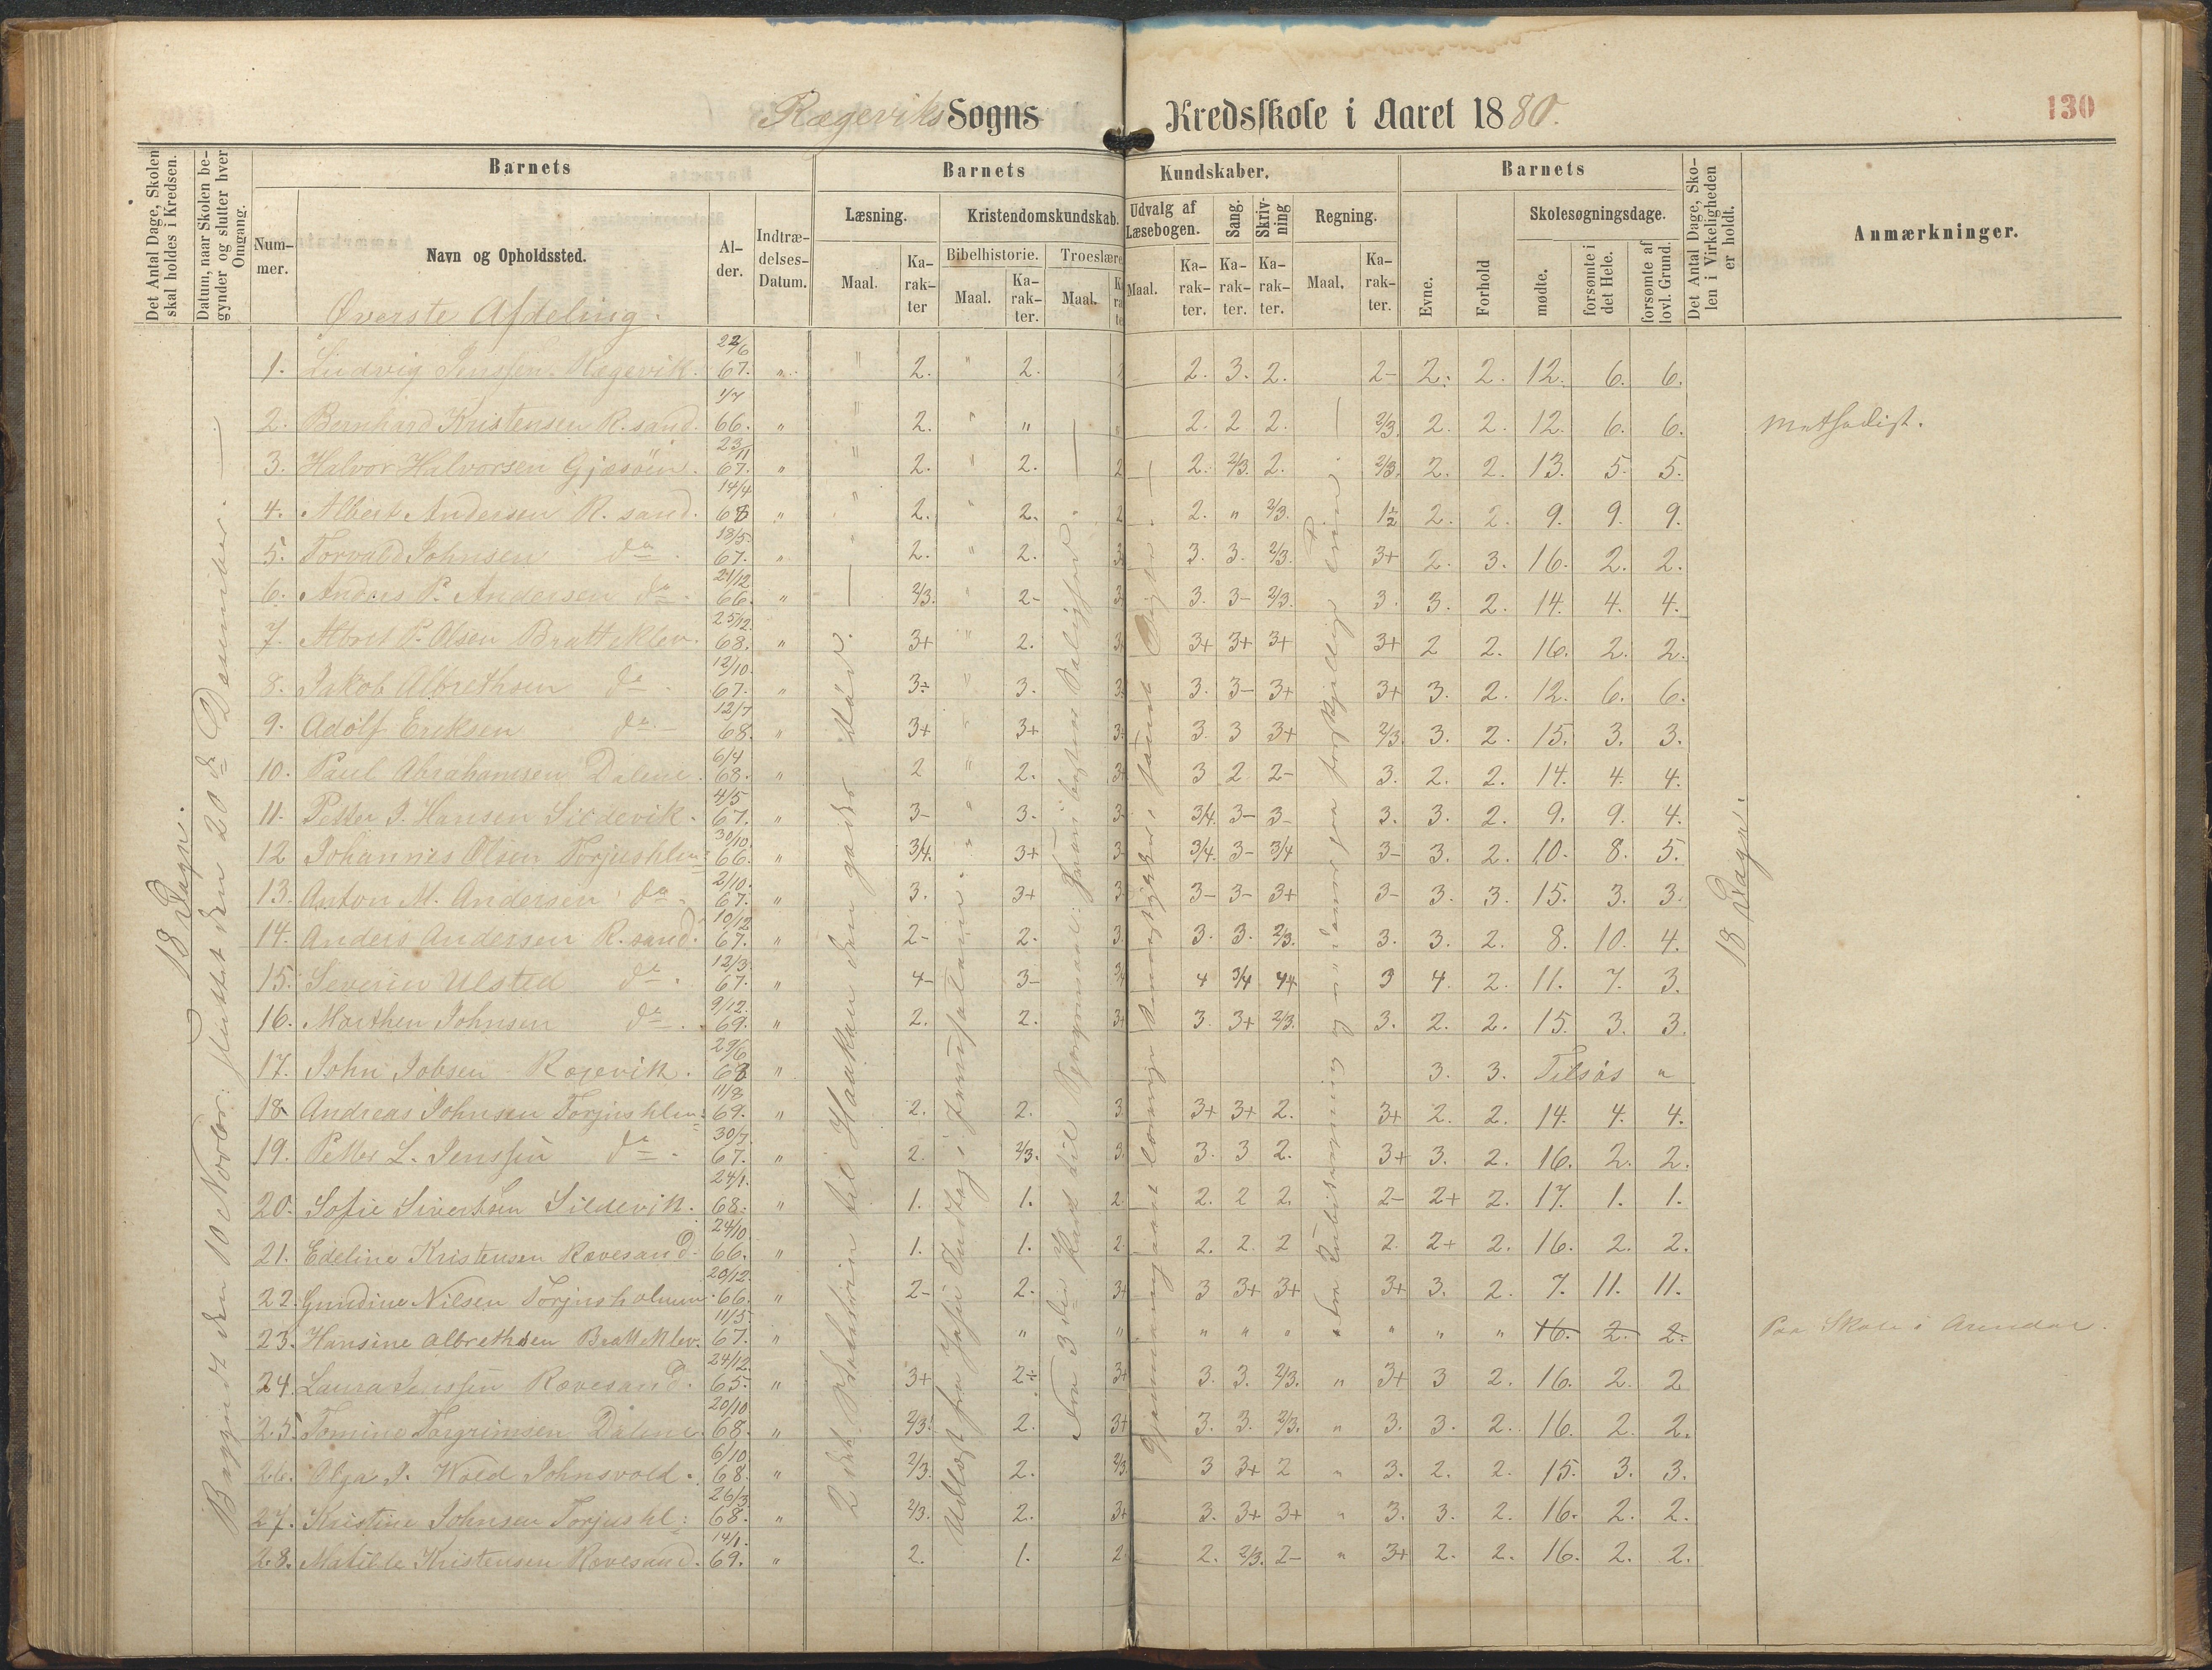 Rægeviks Sogns Kredsskole i Aaret 1880.
130
Det Antal Dage, Skolen skal holdes i Kredsen.
Datum, naar Skolen begynder og slutter hver Omgang.
Barnets
Nummer.
Navn og Opholdssted.
Alder.
Indtrædelses-Datum.
Barnets Kundskaber.
Læsning. Maal. Karakter
Kristendomskundskab.
Bibelhistorie. Maal. Karakter.
Troeslære Maal.
Udvalg af Læsebogen. Maal. Karakter.
Sang. Karakter.
Skrivning Karakter.
Regning. Maal. Karakter.
Barnets
Evne.
Forhold
Skolesøgningsdage.
mødte.
forsømte i det Hele.
forsømte af lovl. Grund.
Det Antal Dage, Skolen i Virkeligheden er holdt.
Anmærkninger.
Øverste Afdeling.
18 Dage.
Begyndt den 10de Novbr: sluttet den 20de Desember.
2det Skoletrin til Haakon den godes Død.
Udvalgt fra
18 Dage.
1. Ludvig Jenssen Rægevik. 22/6 67. " " 2. " 2. 2. 3. 2. 2- 2. 2. 12. 6. 6.
2. Bernhard Kristensen R. sand. 1/7 66. " " 2. " " 2. 2 2. 2/3. 2. 2. 12. 6. 6. Methodist.
3. Halvor Halvorsen Gjæsöen. 23/11 67. " " 2. " 2. 2 2. 2/3. 2. 2/3. 2. 2. 13. 5. 5.
4. Albert Andersen R. sand. 14/4 68 " " 2. " 2. 2 2. " 2/3. 1/2 2. 2. 9. 9. 9.
5. Torvald Johnsen do. 18/5 67. " " 2. " 2. 3. 3. 3. 2/3. 3+ 2. 3. 16. 2. 2.
6. Anders P. Andersen do. 21/12 66. " 2/3. " 2- 3. 3- 2/3. 3. 3. 2. 14. 4. 4.
7. Albret P. Olsen Bratteklev. 25/12 68. " 3+ " 2. 3+ 3+ 3+ 3+ 2 2. 16. 2. 2.
8. Jakob Albrethsen do. 12/10 67. " 3÷ " 3. 3. 3- 3+ 3+ 3. 2. 12. 6. 6.
9. Adolf Eriksen do. 12/7 68. " 3+ " 3+ 3. 3 3+ 2/3. 3. 2. 15. 3. 3.
10. Paul Abrahamsen Dalene. 6/4 68. " 2 " 2. 3+ 3 2 2- 3. 2. 2. 14. 4. 4.
11. Petter J. Hansen Sildevik. 4/5 67. " 3- " 3. 3- 3/4. 3- 3- 3. 3. 2. 9. 9. 4.
12 Johannes Olsen Torjushlm: 30/10 66. " 3/4. " 3+ 3- 3/4. 3- 3/4 3- 3. 2. 10. 8. 5.
13. Anton M. Andersen do. 2/10 67. " 3. 3+ 3 3- 3- 3+ 3- 3. 3. 15. 3. 3.
14. Anders Andersen R. sand. 10/12 67. " 2- 2. 3. 3. 3. 2/3. 3. 3. 2. 8. 10. 4.
15. Severin Ulsted do. 12/3 67. " 4- 3- 3/4 4 3/4 4+ 3 4. 2. 11. 7. 3.
16. Marthen Johnsen do. 9/12 69. " 2. 2. 3+ 3. 3+ 2/3. 3. 2. 2. 15. 3. 3.
17. John Jobsen Rægevik. 29/6 68 " 3. 3. Tilsøs "
18. Andreas Johnsen Torjushlm: 11/8 69. " 2. 2. 3. 3+ 3+ 2. 3+ 2. 2. 14. 4. 4.
19. Petter L. Jenssen do. 30/7 67. " 2. 2/3. 3. 3. 3 2. 3+ 3. 2. 16. 2. 2.
20. Sofie Sivertsen Sildevik. 24/1 68. " 1. 1. 2. 2. 2 2. 2- 2+ 2. 17. 1. 1.
21. Edeline Kristensen Rævesand. 24/10 66. " 1. 1. 2. 2. 2. 2 2. 2+ 2. 16. 2. 2.
22. Gundine Nilsen Torjusholmen. 20/12 66. " 2- 2. 3+ 3 3+ 3+ 3+ 3. 2. 7. 11. 11.
23. Hansine Albrethsen Bratteklev. 11/5 67. " " " " " " " " " 16. 2. 2. Paa Skole i Arendal.
24. Laura Jenssen Rævesand. 24/12 65. " 3+ 2÷ 3+ 3. 3. 2/3. " 3+ 3 2. 16. 2. 2
25. Tomine Torgrimsen Dalene. 20/10 68. " 2/3. 2. 3+ 3. 3. 2/3. " 3. 3. 2. 16. 2. 2.
26. Olga J. Wold Johnsvold. 6/10 68. " 2/3. 2. 2/3 3 3+ 2 " 3. 2. 2. 15. 3. 3.
27. Kristine Johnsen Torjushl: 26/3 68. " 2/3. 2. 3+ 3. 3+ 3+ " 3. 3. 2. 16. 2. 2.
28. Matilde Kristensen Rævesand. 14/1 69. " 2. 1. 2 2. 2/3. 2- " 3+ 2. 2. 16. 2. 2.